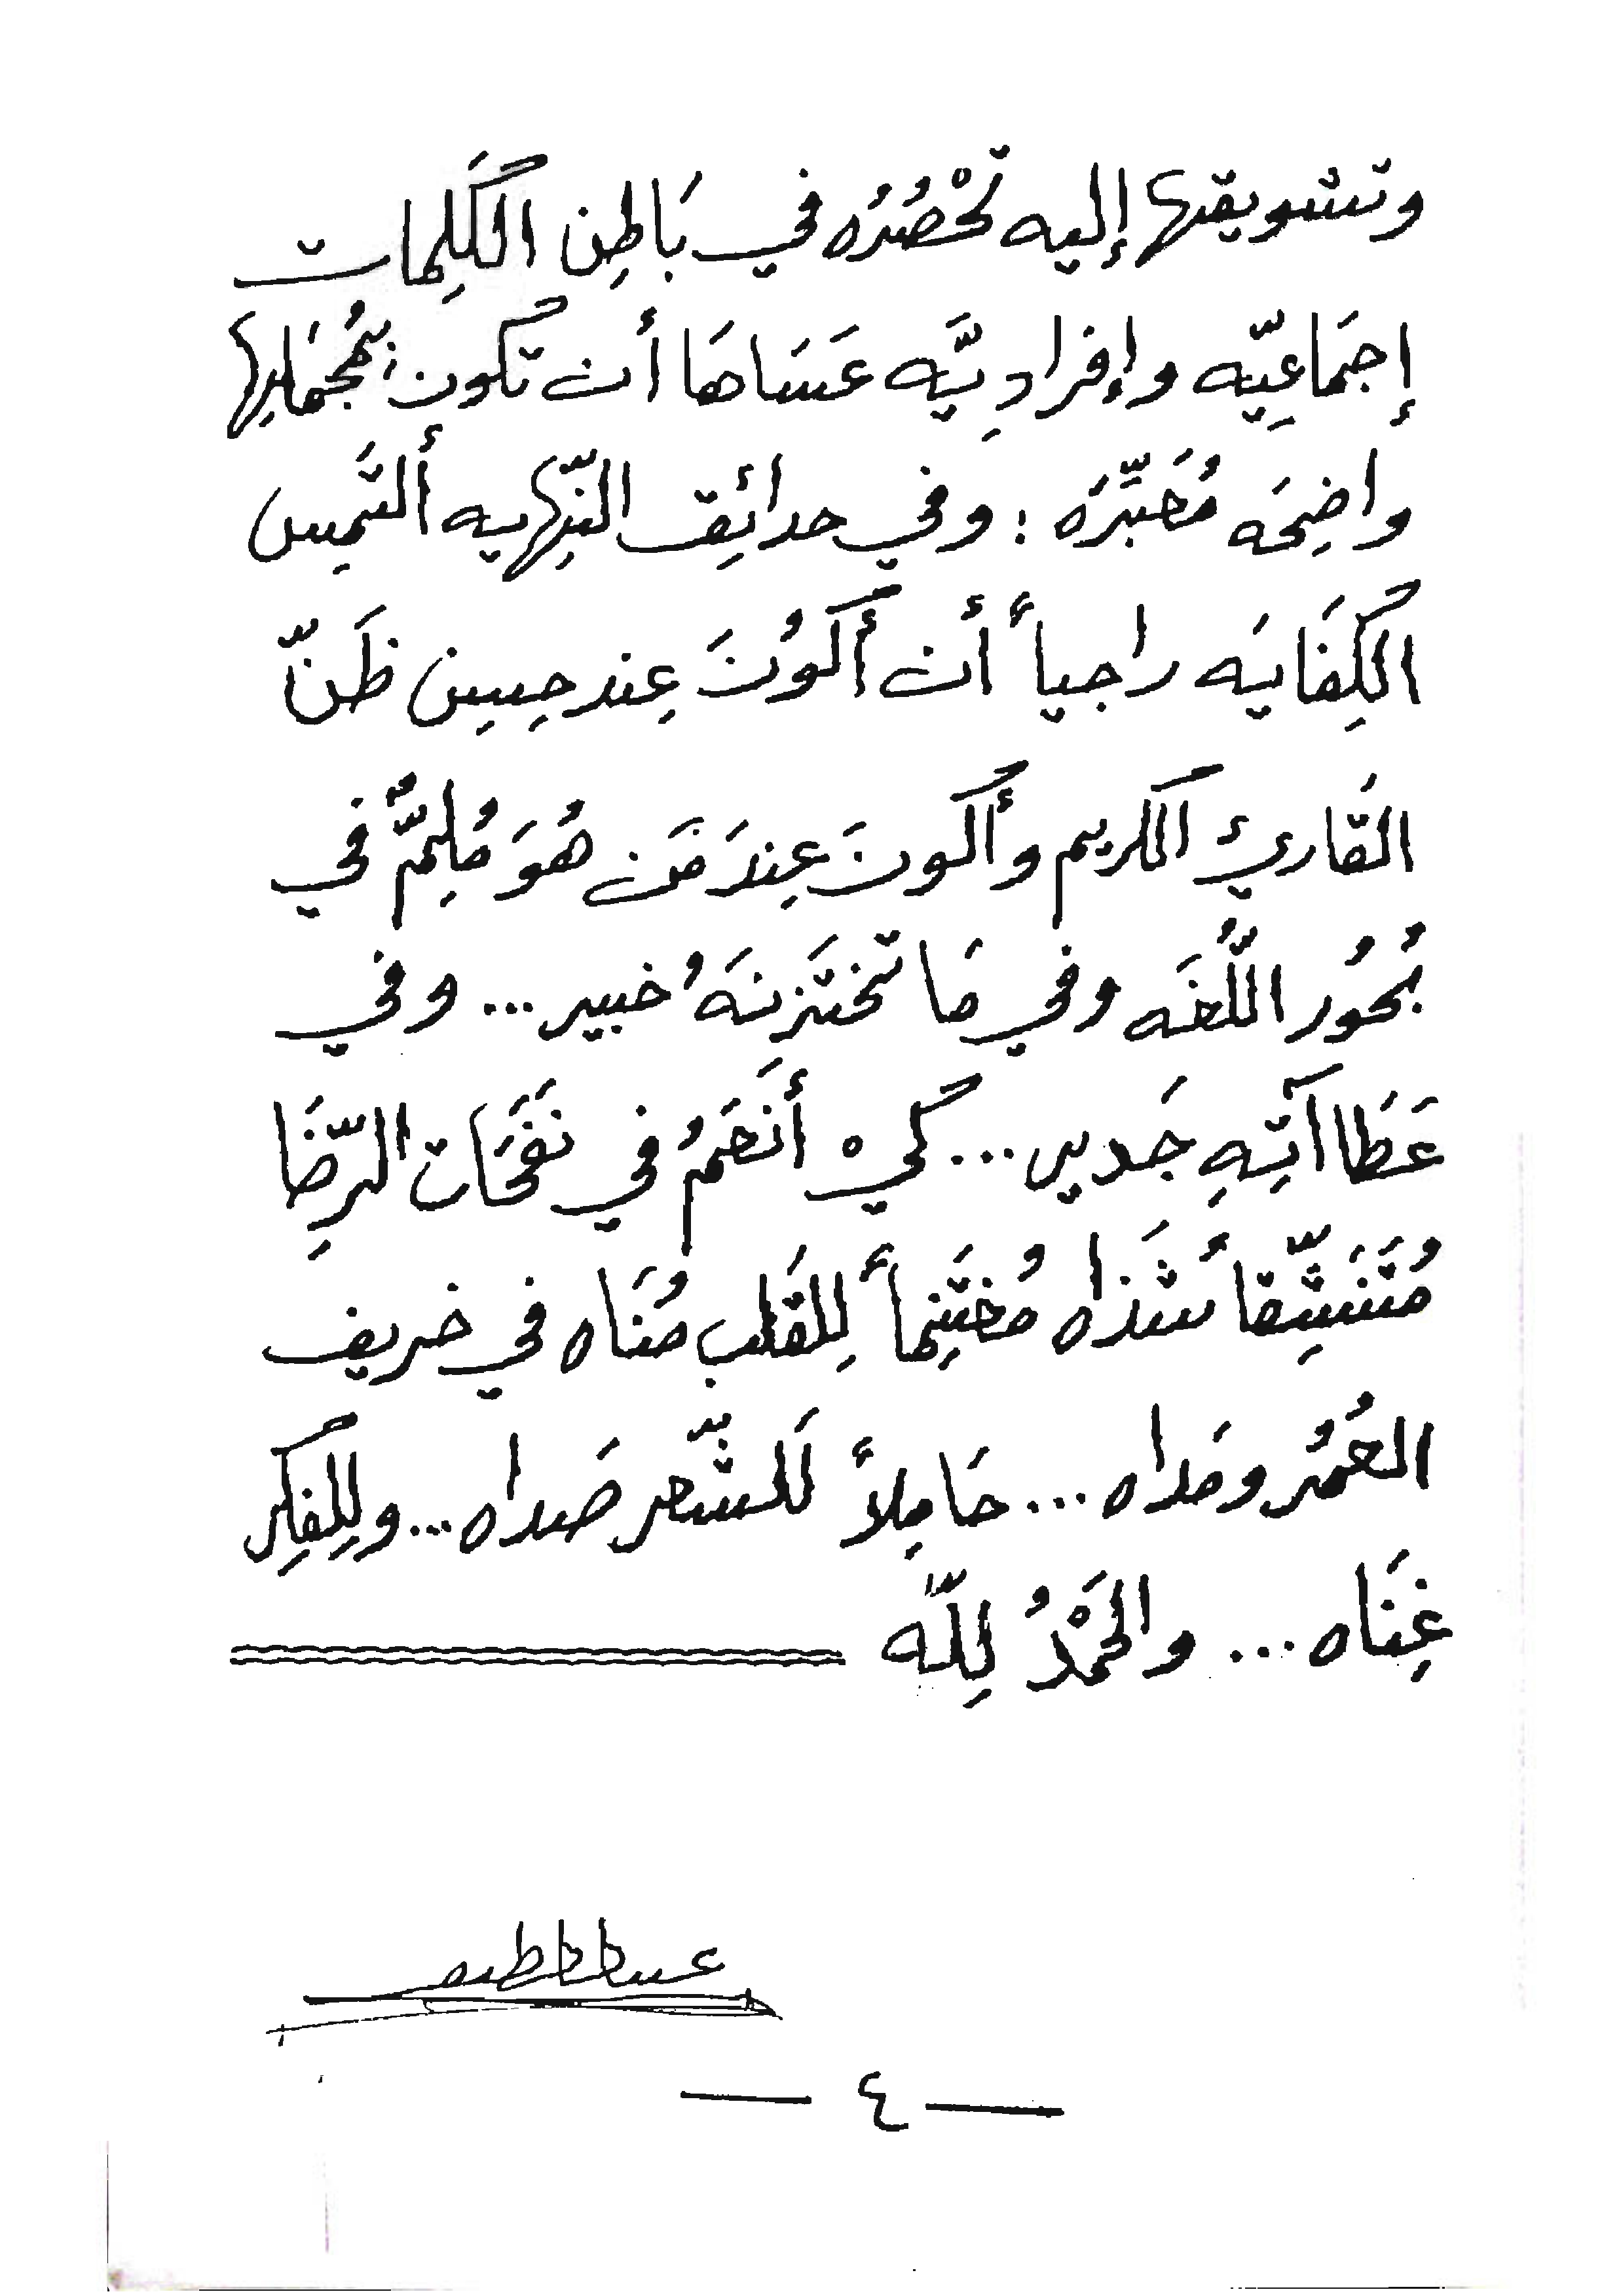 وتشويقها إليه تَحْصُرُه في بَاطِن الكَلِمات
إجمَاعِيّه وإفرادِيَّه عَسَاهَا أن تكون بمُجمَلِها
واضِحَه مُعَبِّرَه : وفي حدائِق النِّهايه ألتَمِس
الكِفَايَه راجياً أن أكوُنَ عِند حِسِن ظَنّ
القَاريُ الكريم وأكونَ عِندَ مَن هُوَ مُلِمٌّ في
بُحُور اللُّغَه وفي مَا تختَزِنَهُ خبير ... وفي
عَطَاآتِهِ جَدير ... كيْ أنعَمُ في نَفَحَات الرِّضَا
مُتَنَشِّقاً شَذاه مُغتَنِماً لِلقَلب مُنَاه في خريف
العُمُر ومَداه ... حَامِلاً لَلشّعر صَداه ... ولِلفِكِر
غِنَاه ... والحَمْدُ لِلّه
عبد اللطيف
— ٤ —